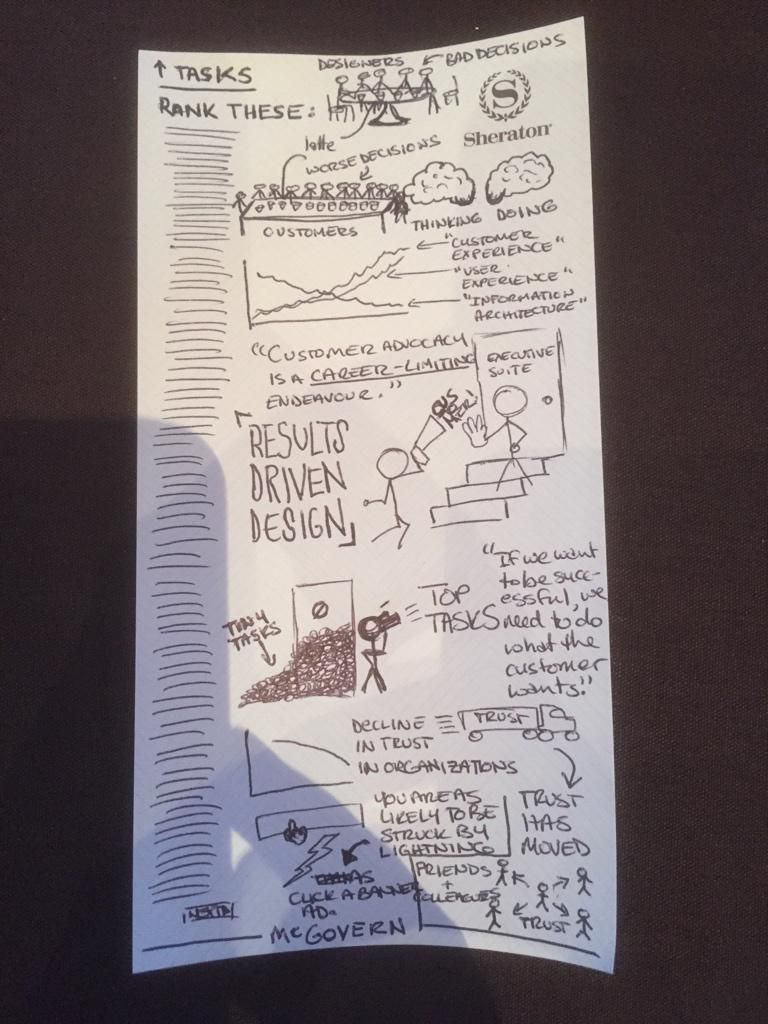 ↑ TASKS
RANK THESE:
DESIGNERS ← BAD DECISIONS
S
Sheraton
latte
WORSE DECISIONS
CUSTOMERS
THINKING DOING
"CUSTOMER
EXPERIENCE"
"USER
EXPERIENCE"
"INFORMATION
ARCHITECTURE"
"CUSTOMER ADVOCACY
IS A CAREER-LIMITING
ENDEAVOUR."
EXECUTIVE
SUITE
RESULTS
DRIVEN
DESIGN
TINY
TASKS
TOP
TASKS
"If we want
to be succ-
essful, we
need to do
what the
customer
wants."
DECLINE
IN TRUST
IN ORGANIZATIONS
TRUST
TRUST
HAS
MOVED
YOU ARE AS
LIKELY TO BE
STRUCK BY
LIGHTNING
AS
CLICK A BANNER
AD.
FRIENDS
+
COLLEAGUES
TRUST
McGOVERN